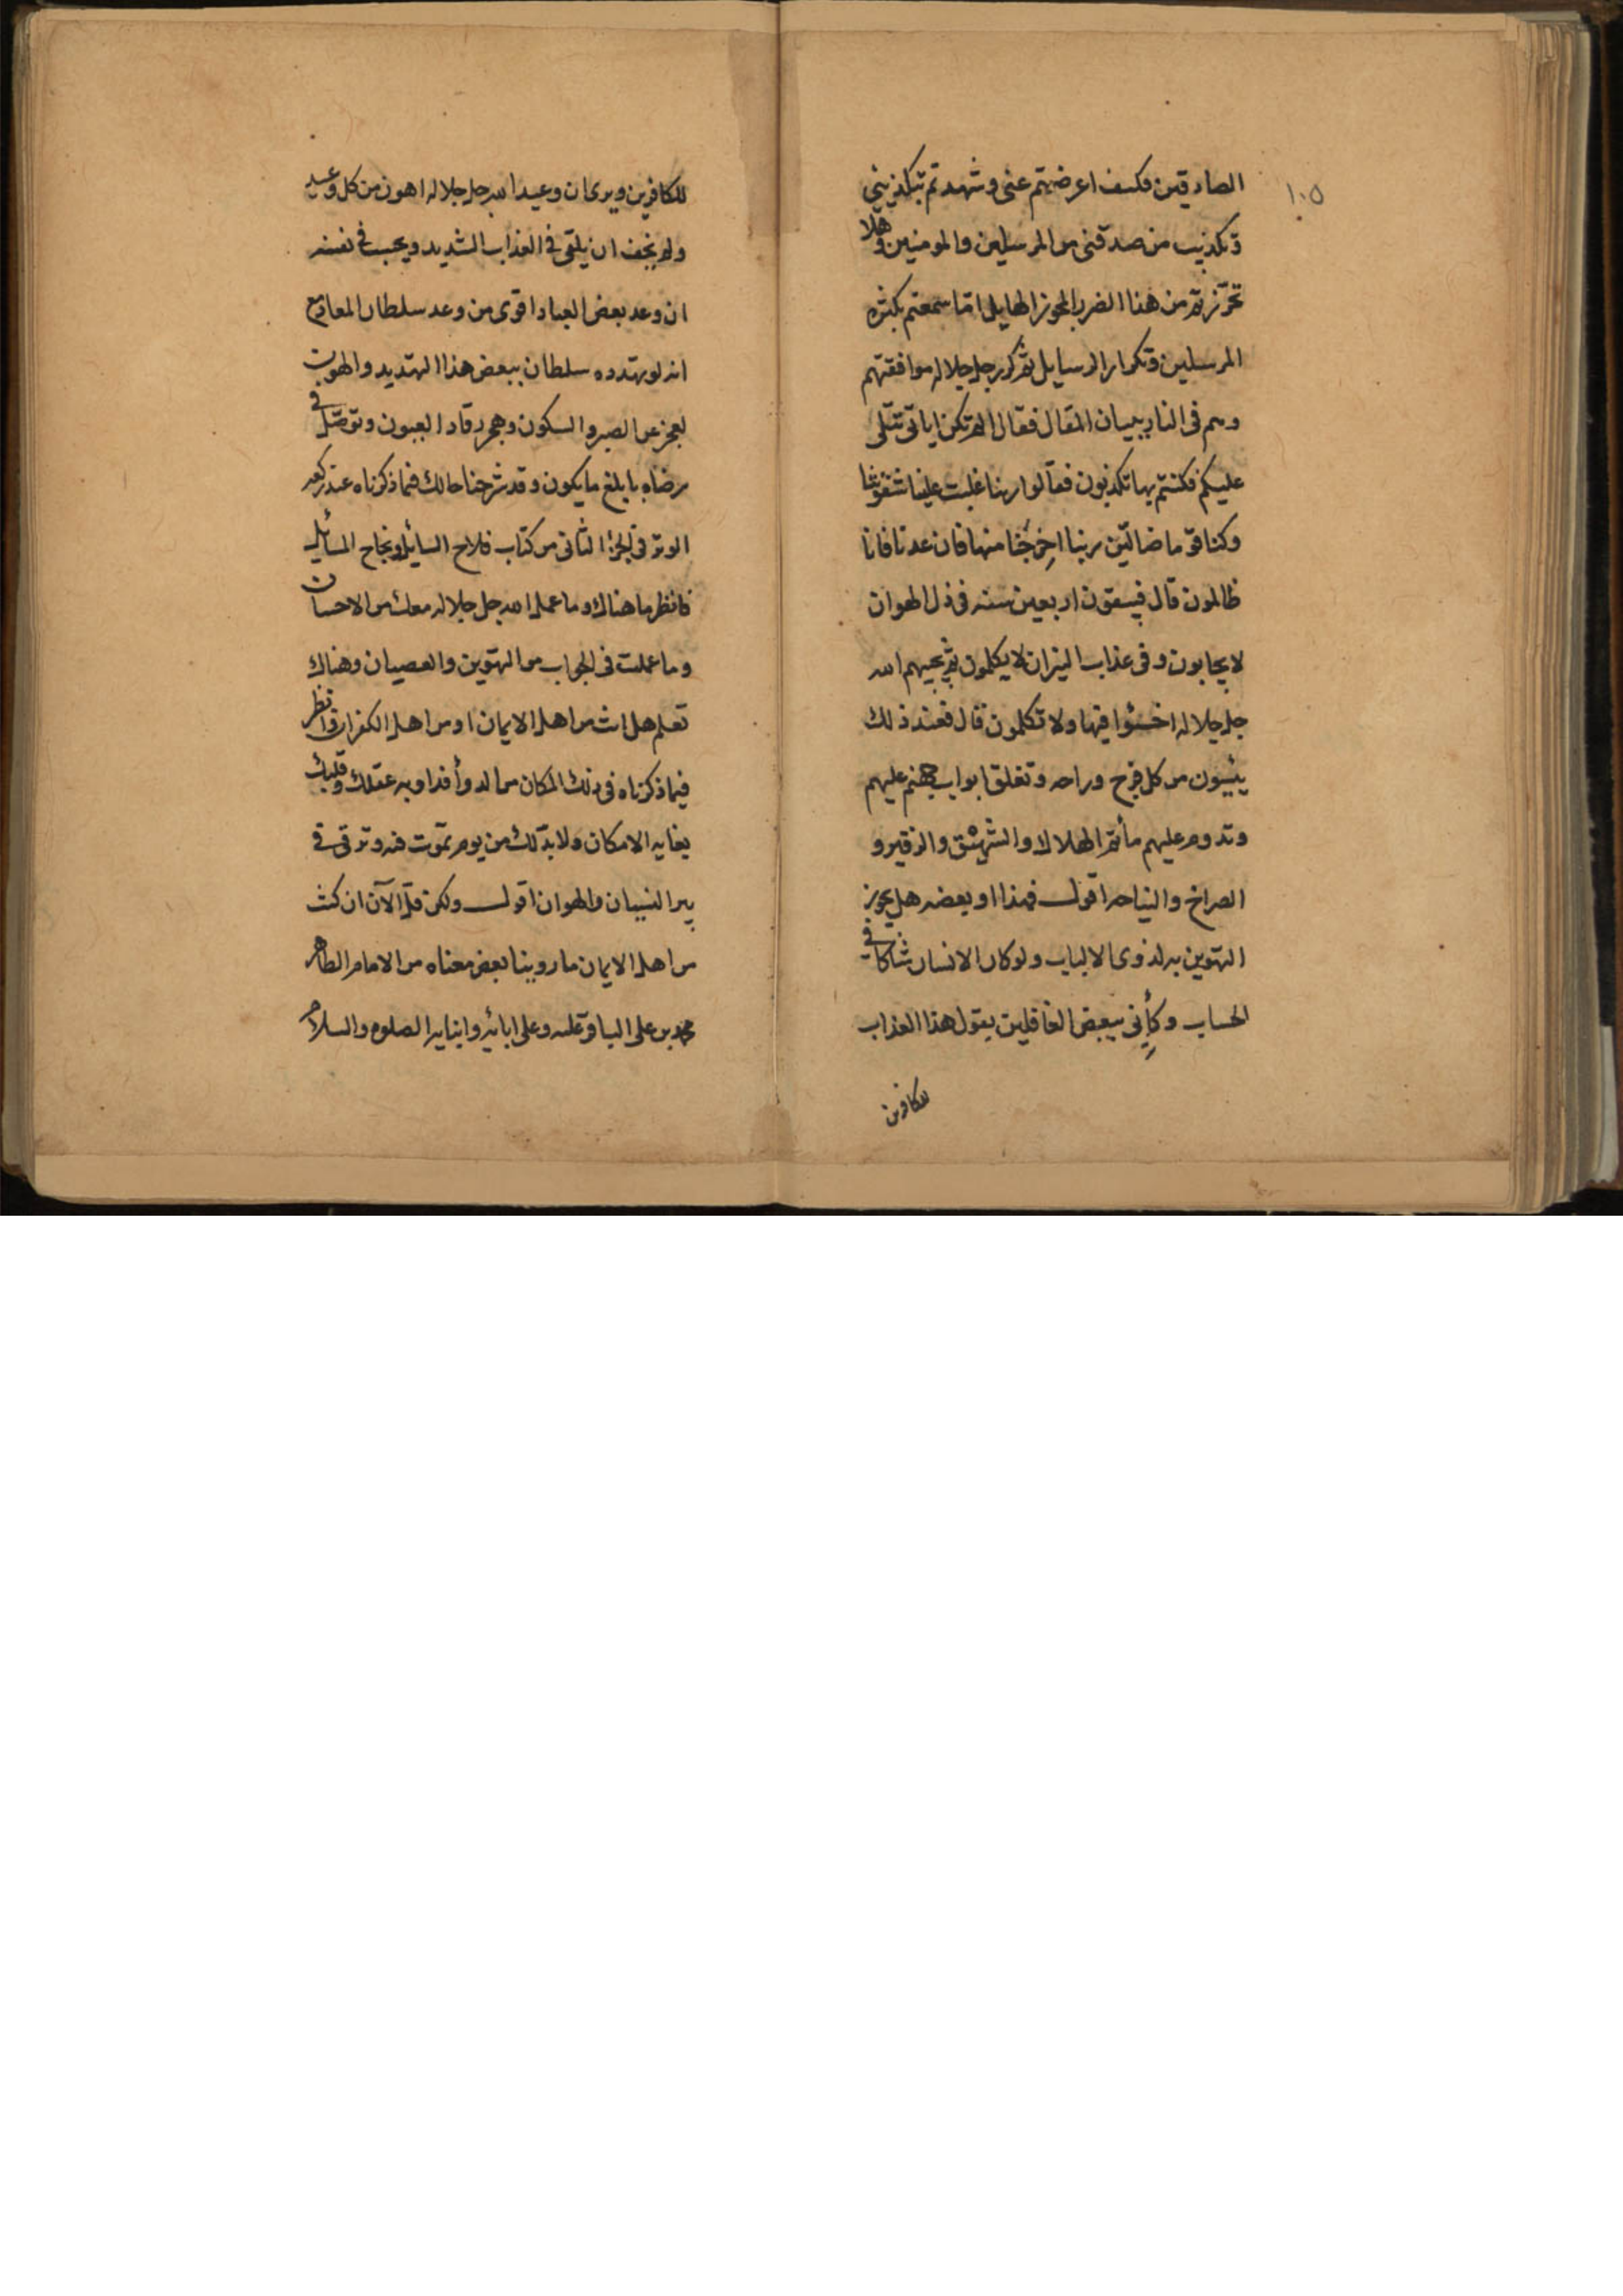 ١٠٥
الصادقين فكيف اعرضتم عنى وشهدتم بتكذيبى
وتكذيب من صدقنى من المرسلين والمومنين وهلا
تحرزتم من هذا الضرر المجوز الهايل اما سمعتم بكثرة
المرسلين وتكرار الرسايل ثم كرر جل جلاله موافقتهم
وهم فى النار ببيان المقال فقال الم تكن اياتى تتلى
عليكم فكنتم بها تكذبون فقالوا ربنا غلبت علينا شقوتنا
وكنا قوما ضالين ربنا اخرجنا منها فان عدنا فانا
ظالمون قال فيبقون اربعين سنه فى ذل الهوان
لا يجابون وفى عذاب النيران لا يكلمون ثم يجيبهم الله
جل جلاله اخسئوا فيها ولا تكلمون قال فعند ذلك
ييئسون من كل فرج وراحه وتغلق ابواب جهنم عليهم
وتدوم عليهم مأتم الهلاك والشهيق والزفير و
الصراخ والنياحه اقول فهذا او بعضه هل يجوز
التهوين به لذوى الالباب ولو كان الانسان شاكا فى
الحساب وكأنى ببعض الغافلين يقول هذا العذاب
للكافرين
للكافرين ويرى ان وعيد الله جل جلاله اهون من كل وعيد
ولم يخف ان يلقى فى العذاب الشديد ويحسب فى نفسه
ان وعد بعض العباد اقوى من وعد سلطان المعاد مع
انه لو تهدده سلطان ببعض هذا التهديد والهون
لعجز عن الصبر والسكون وهجر رقاد العيون وتوصل فى
رضاه بابلغ ما يكون وقد شرحنا حالك فيما ذكرناه عند ركعه
الوتر فى الجزء الثانى من كتاب فلاح السايل ونجاح المسائل
فانظر ما هناك وما عمله الله جل جلاله معك من الاحسان
وما عملت فى الجواب من التهوين والعصيان وهناك
تعلم هل انت من اهل الايمان او من اهل الكفران وانظر
فيما ذكرناه فى ذلك المكان من الدوآء فداو به عقلك وقلبك
بغايه الامكان ولا بد لك من يوم تموت فيه وترقى فى
بير النسيان والهوان اقول ولكن قل الآن ان كنت
من اهل الايمان ما روينا بعض معناه من الامام الطاهر
محمد بن على الباقر عليه وعلى ابائه وابنايه الصلوه والسلام